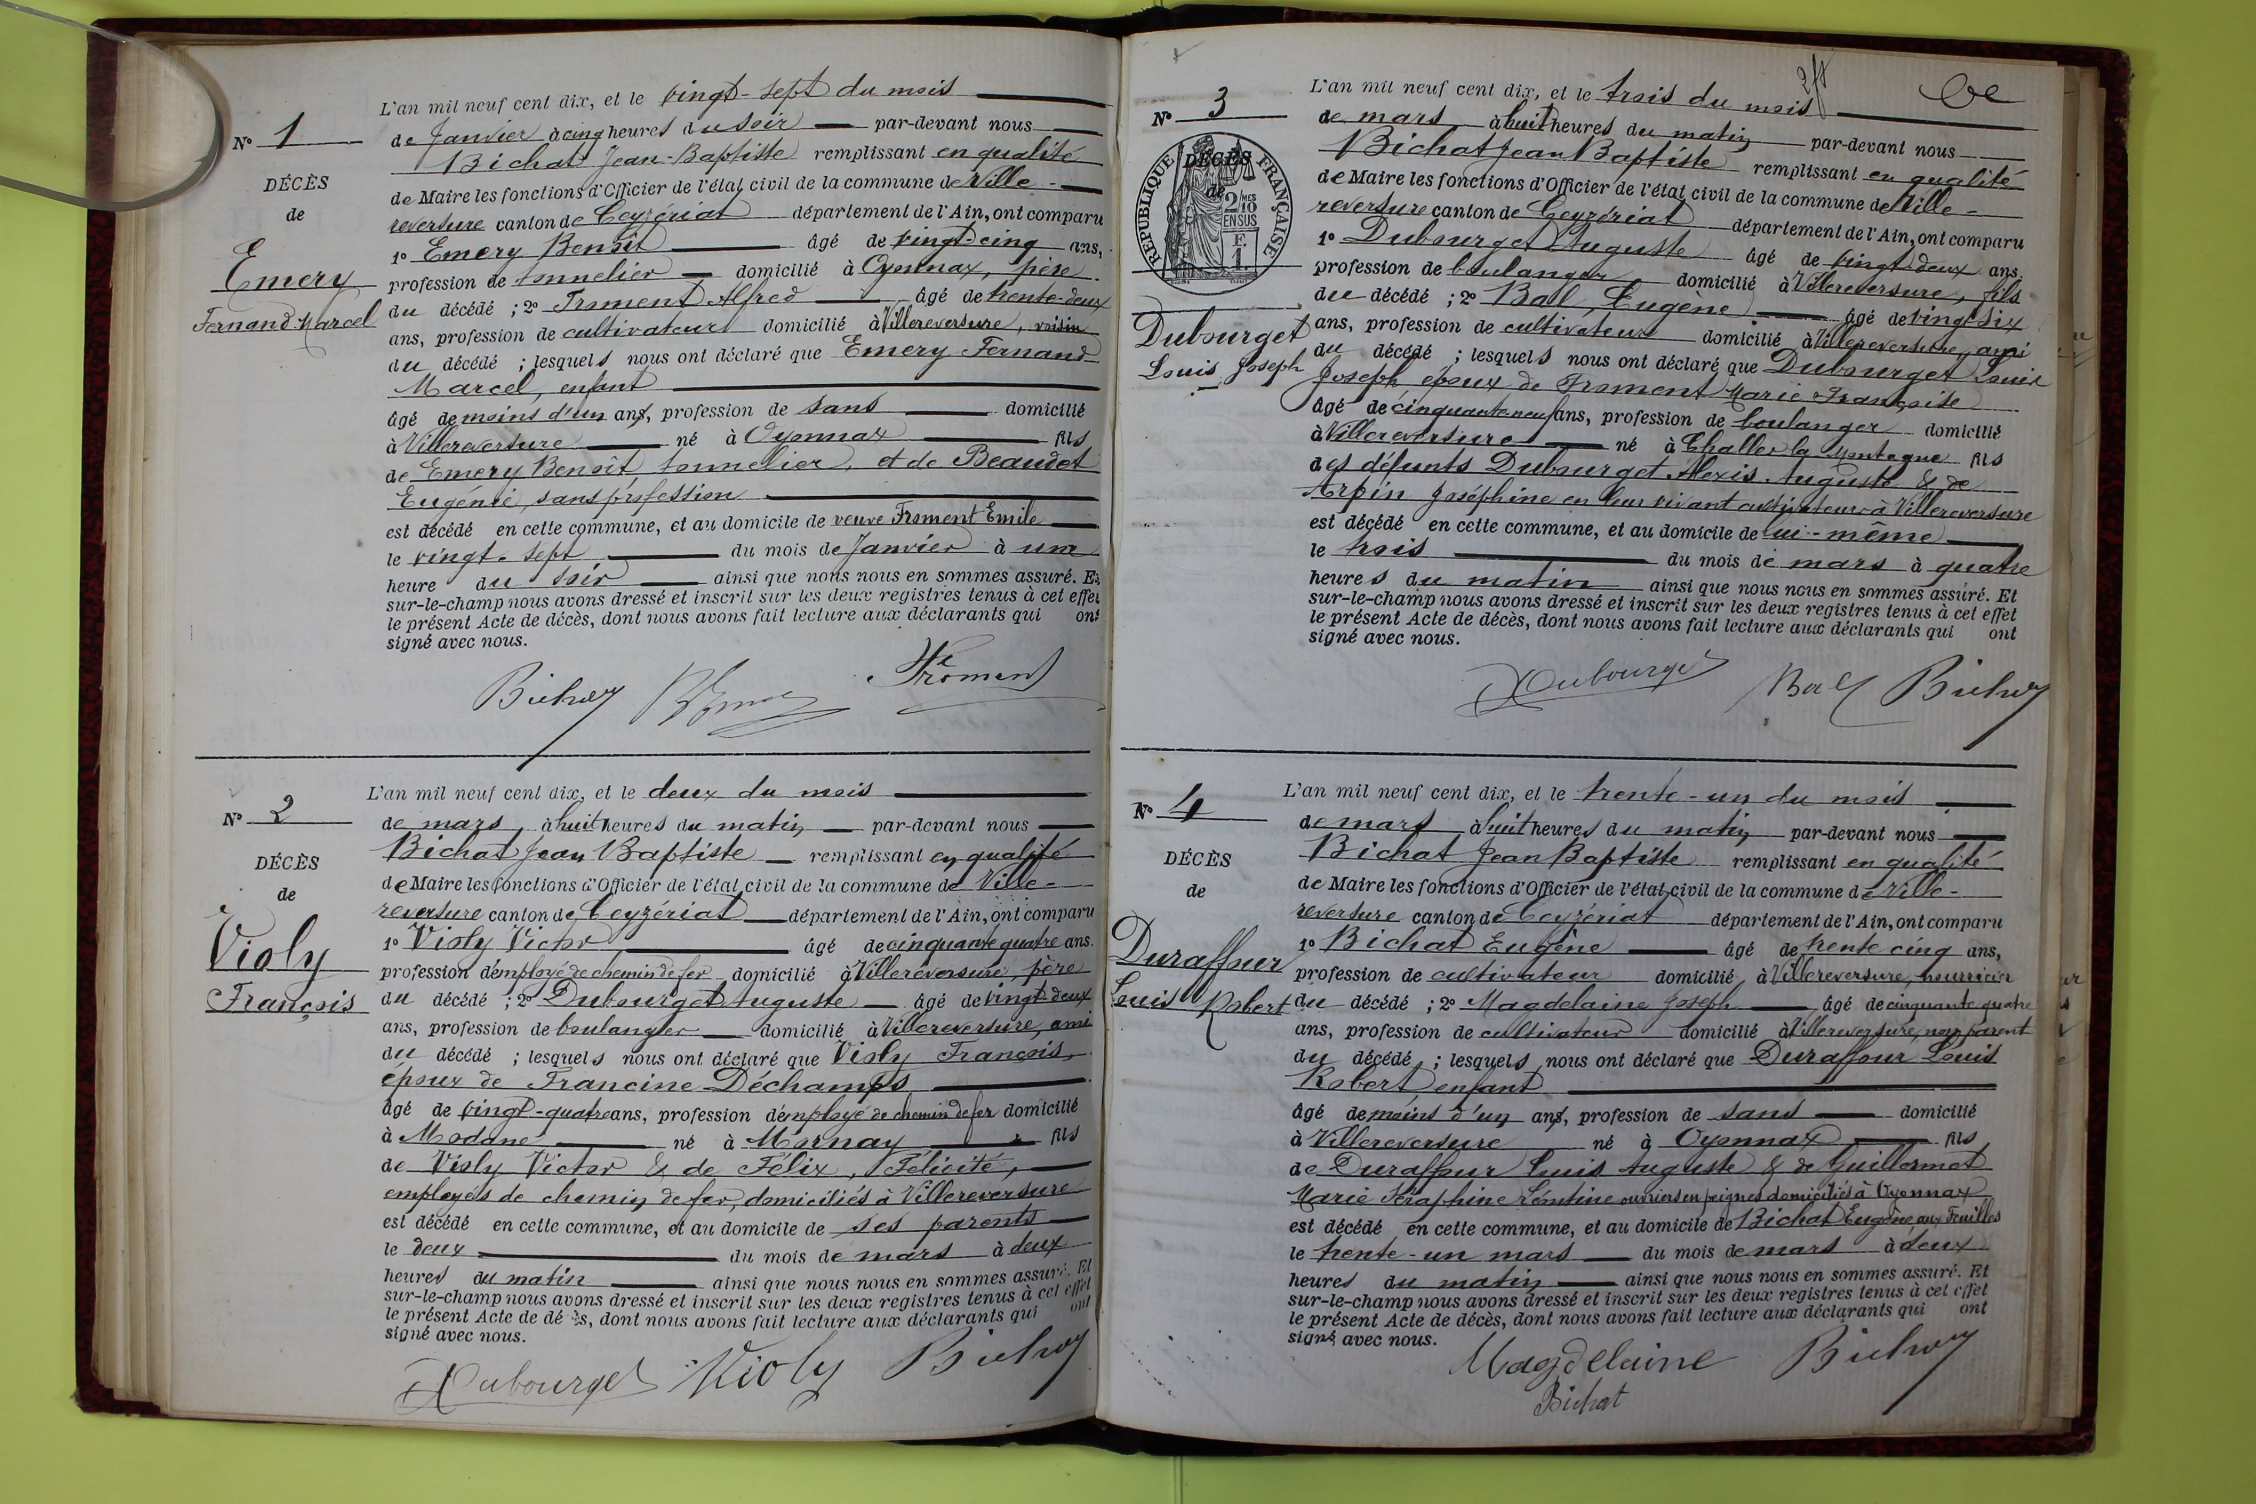 N° 1
DÉCÈS
de
Emery
Fernand Marcel
L'an mil neuf cent dix, et le vingt-sept du mois
de Janvier à cinq heures du soir par-devant nous
Bichat Jean-Baptiste remplissant en qualité
de Maire les fonctions d'Officier de l'état civil de la commune de Ville-
reversure canton de Ceyzériat département de l'Ain, ont comparu
1° Emery Benoît âgé de vingt-cinq ans,
profession de tonnelier domicilié à Oyonnax, père
du décédé ; 2° Froment Alfred âgé de trente-deux
ans, profession de cultivateur domicilié à Villereversure, voisin
du décédé ; lesquels nous ont déclaré que Emery Fernand
Marcel, enfant
âgé de moins d'un ans, profession de sans domicilié
à Villereversure né à Oyonnax fils
de Emery Benoît tonnelier, et de Beaudet
Eugénie, sans profession
est décédé en cette commune, et au domicile de veuve Froment Emile
le vingt-sept du mois de Janvier à une
heure du soir ainsi que nous nous en sommes assuré. Et
sur-le-champ nous avons dressé et inscrit sur les deux registres tenus à cet effet
le présent Acte de décès, dont nous avons fait lecture aux déclarants qui ont
signé avec nous.
Bichat Froment
N° 2
DÉCÈS
de
Violy
François
L'an mil neuf cent dix, et le deux du mois
de mars, à huit heures du matin par-devant nous
Bichat Jean Baptiste remplissant en qualité
de Maire les fonctions d'Officier de l'état civil de la commune de Ville-
reversure canton de Ceyzériat département de l'Ain, ont comparu
1° Violy Victor âgé de cinquante quatre ans.
profession d'employé de chemin de fer domicilié à Villereversure, père
du décédé ; 2° Dubourget Auguste âgé de vingt-deux
ans, profession de boulanger domicilié à Villereversure, ami
du décédé ; lesquels nous ont déclaré que Violy François,
époux de Francine Déchamps
âgé de vingt-quatre ans, profession d'employé de chemin de fer domicilié
à Modane né à Mornay fils
de Violy Victor & de Félix, Félicité,
employés de chemin de fer, domiciliés à Villereversure
est décédé en cette commune, et au domicile de ses parents
le deux du mois de mars à deux
heures du matin ainsi que nous nous en sommes assuré. Et
sur-le-champ nous avons dressé et inscrit sur les deux registres tenus à cet effet
le présent Acte de décès, dont nous avons fait lecture aux déclarants qui ont
signé avec nous.
Dubourget Violy Bichat
N° 3
RÉPUBLIQUE FRANÇAISE
DÉCÈS
de
2 MES 10
EN SUS
Dubourget
Louis Joseph
L'an mil neuf cent dix, et le trois du mois
de mars à huit heures du matin par-devant nous
Bichat Jean Baptiste remplissant en qualité
de Maire les fonctions d'Officier de l'état civil de la commune de Ville-
reversure canton de Ceyzériat département de l'Ain, ont comparu
1° Dubourget Auguste âgé de vingt-deux ans.
profession de boulanger domicilié à Villereversure, fils
du décédé ; 2° Bal, Eugène âgé de vingt-six
ans, profession de cultivateur domicilié à Villereversure, ami
du décédé ; lesquels nous ont déclaré que Dubourget Louis
Joseph, époux de Froment Marie Françoise
âgé de cinquante neuf ans, profession de boulanger domicilié
à Villereversure né à Challes la Montagne fils
des défunts Dubourget Alexis Auguste & de
Arpin Joséphine en leur vivant cultivateurs à Villereversure
est décédé en cette commune, et au domicile de lui-même
le trois du mois de mars à quatre
heures du matin ainsi que nous nous en sommes assuré. Et
sur-le-champ nous avons dressé et inscrit sur les deux registres tenus à cet effet
le présent Acte de décès, dont nous avons fait lecture aux déclarants qui ont
signé avec nous.
Dubourget Bal Bichat
N° 4
DÉCÈS
de
Duraffour
Louis Robert
L'an mil neuf cent dix, et le trente-un du mois
de mars à huit heures du matin par-devant nous
Bichat Jean Baptiste remplissant en qualité
de Maire les fonctions d'Officier de l'état civil de la commune de Ville-
reversure canton de Ceyzériat département de l'Ain, ont comparu
1° Bichat Eugène âgé de trente cinq ans,
profession de cultivateur domicilié à Villereversure, nourricier
du décédé ; 2° Magdelaine Joseph âgé de cinquante quatre
ans, profession de cultivateur domicilié à Villereversure, non parent
du décédé ; lesquels nous ont déclaré que Duraffour Louis
Robert, enfant
âgé de moins d'un ans, profession de sans domicilié
à Villereversure né à Oyonnax fils
de Duraffour Louis Auguste & de Guillermot
Marie Séraphine Léontine ouvriers en peignes domiciliés à Oyonnax
est décédé en cette commune, et au domicile de Bichat Eugène aux Feuilles
le trente-un mars du mois de mars à deux
heures du matin ainsi que nous nous en sommes assuré. Et
sur-le-champ nous avons dressé et inscrit sur les deux registres tenus à cet effet
le présent Acte de décès, dont nous avons fait lecture aux déclarants qui ont
signé avec nous.
Magdelaine Bichat
Bichat